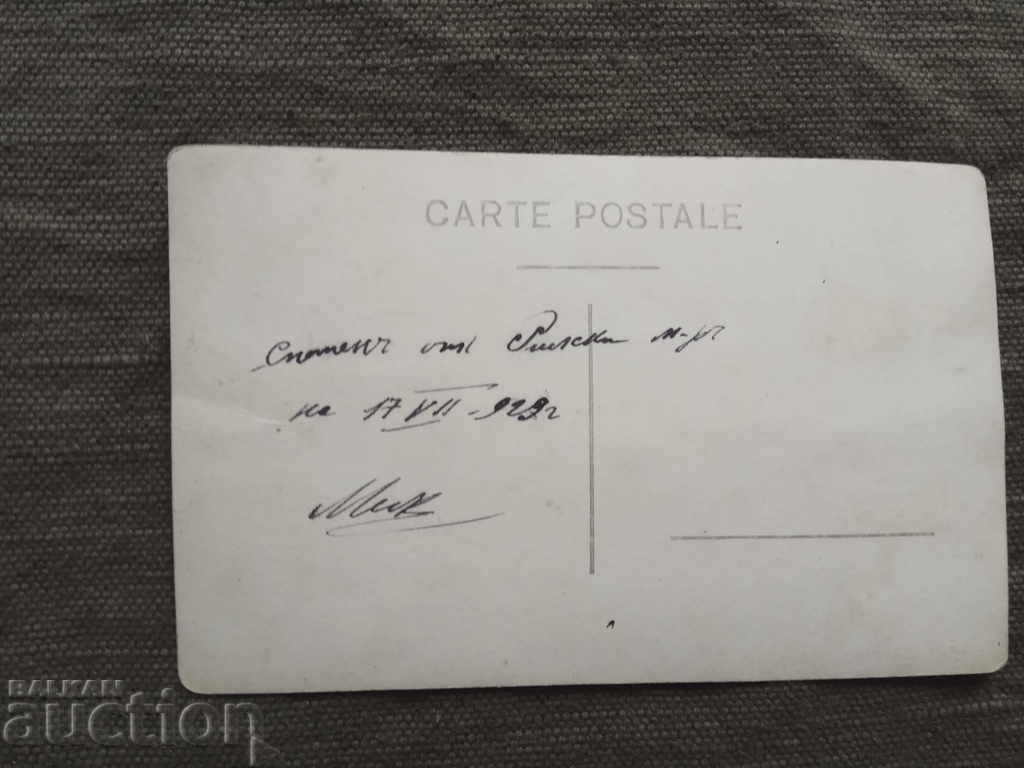 CARTE POSTALE
Споменъ отъ Рилски м-ръ
на 17 VII - 929 г
BALKAN
auction